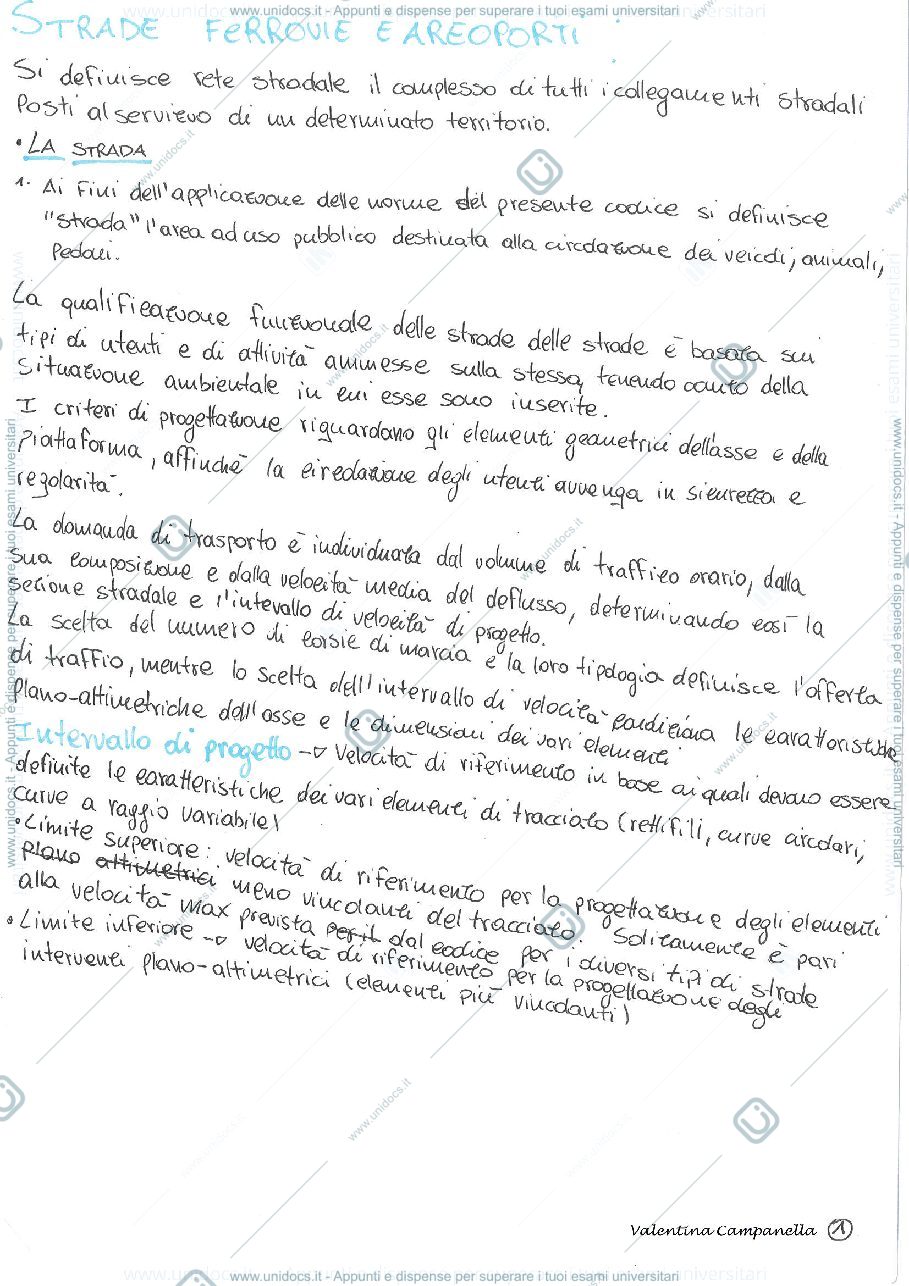 www.unidocs.it - Appunti e dispense per superare i tuoi esami universitari
STRADE FERROVIE E AREOPORTI
Si definisce rete stradale il complesso di tutti i collegamenti stradali
Posti al servizio di un determinato territorio.
• LA STRADA
1. Ai fini dell'applicazione delle norme del presente codice si definisce
"strada" l'area ad uso pubblico destinata alla circolazione dei veicoli, animali,
Pedoni.
La qualificazione funzionale delle strade delle strade è basata sui
tipi di utenti e di attività ammesse sulla stessa, tenendo conto della
Situazione ambientale in cui esse sono inserite.
I criteri di progettazione riguardano gli elementi geometrici dell'asse e della
piattaforma, affinchè la circolazione degli utenti avvenga in sicurezza e
regolarità.
La domanda di trasporto è individuata dal volume di traffico orario, dalla
sua composizione e dalla velocità media del deflusso, determinando così la
sezione stradale e l'intevallo di velocità di progetto.
La scelta del numero di corsie di marcia e la loro tipologia definisce l'offerta
di traffio, mentre lo scelta dell'intervallo di velocità condiziona le caratteristiche
plano-altimetriche dell'asse e le dimensioni dei vari elementi
Intervallo di progetto -> Velocità di riferimento in base ai quali devono essere
definite le caratteristiche dei vari elementi di tracciato (rettifili, curve circolari,
curve a raggio variabile)
• Limite superiore: velocità di riferimento per la progettazione degli elementi
plano altimetrici meno vincolanti del tracciato. Solitamente è pari
alla velocità max prevista per il dal codice per i diversi tipi di strade
• Limite inferiore -> velocità di riferimento per la progettazione degli
interventi plano-altimetrici (elementi più vincolanti)
Valentina Campanella 1
www.unidocs.it - Appunti e dispense per superare i tuoi esami universitari